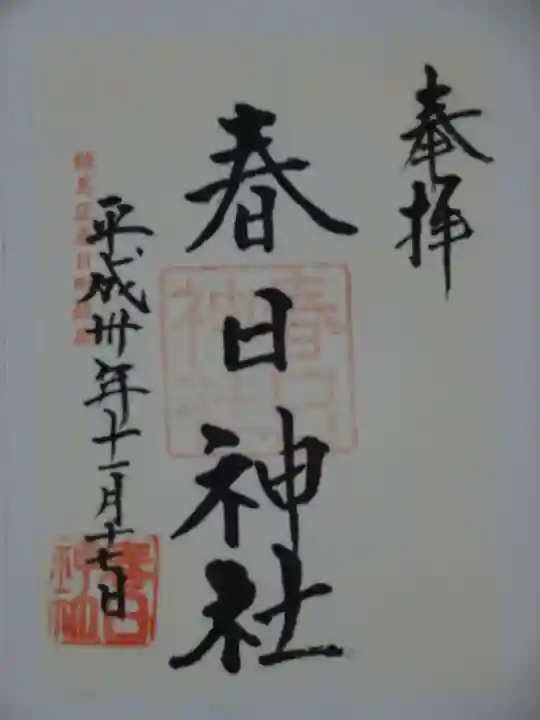 奉拝
春日神社
春日神社
平成卅年十一月十七日